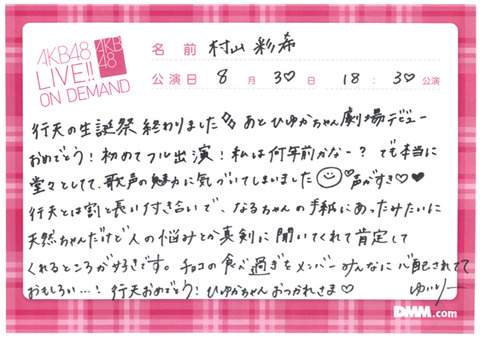 AKB48
LIVE!!
ON DEMAND
AKB
48
名前 村山彩希
公演日 8月30日 18:30公演
行天の生誕祭終わりました あとひゆかちゃん劇場デビュー
おめでとう!初めてフル出演!私は何年前かなー?でも本当に
堂々としてて、歌声の魅力に気づいてしまいました☺♡声がすき♡♥
行天とは割と長い付き合いで、なるちゃんの手紙にあったみたいに
天然ちゃんだけど人の悩みとか真剣に聞いてくれて肯定して
くれるところが好きです。チョコの食べ過ぎをメンバーみんなに心配されてて
おもしろい…!行天おめでとう!ひゆかちゃんおつかれさま♡ ゆいりー
DMM.com